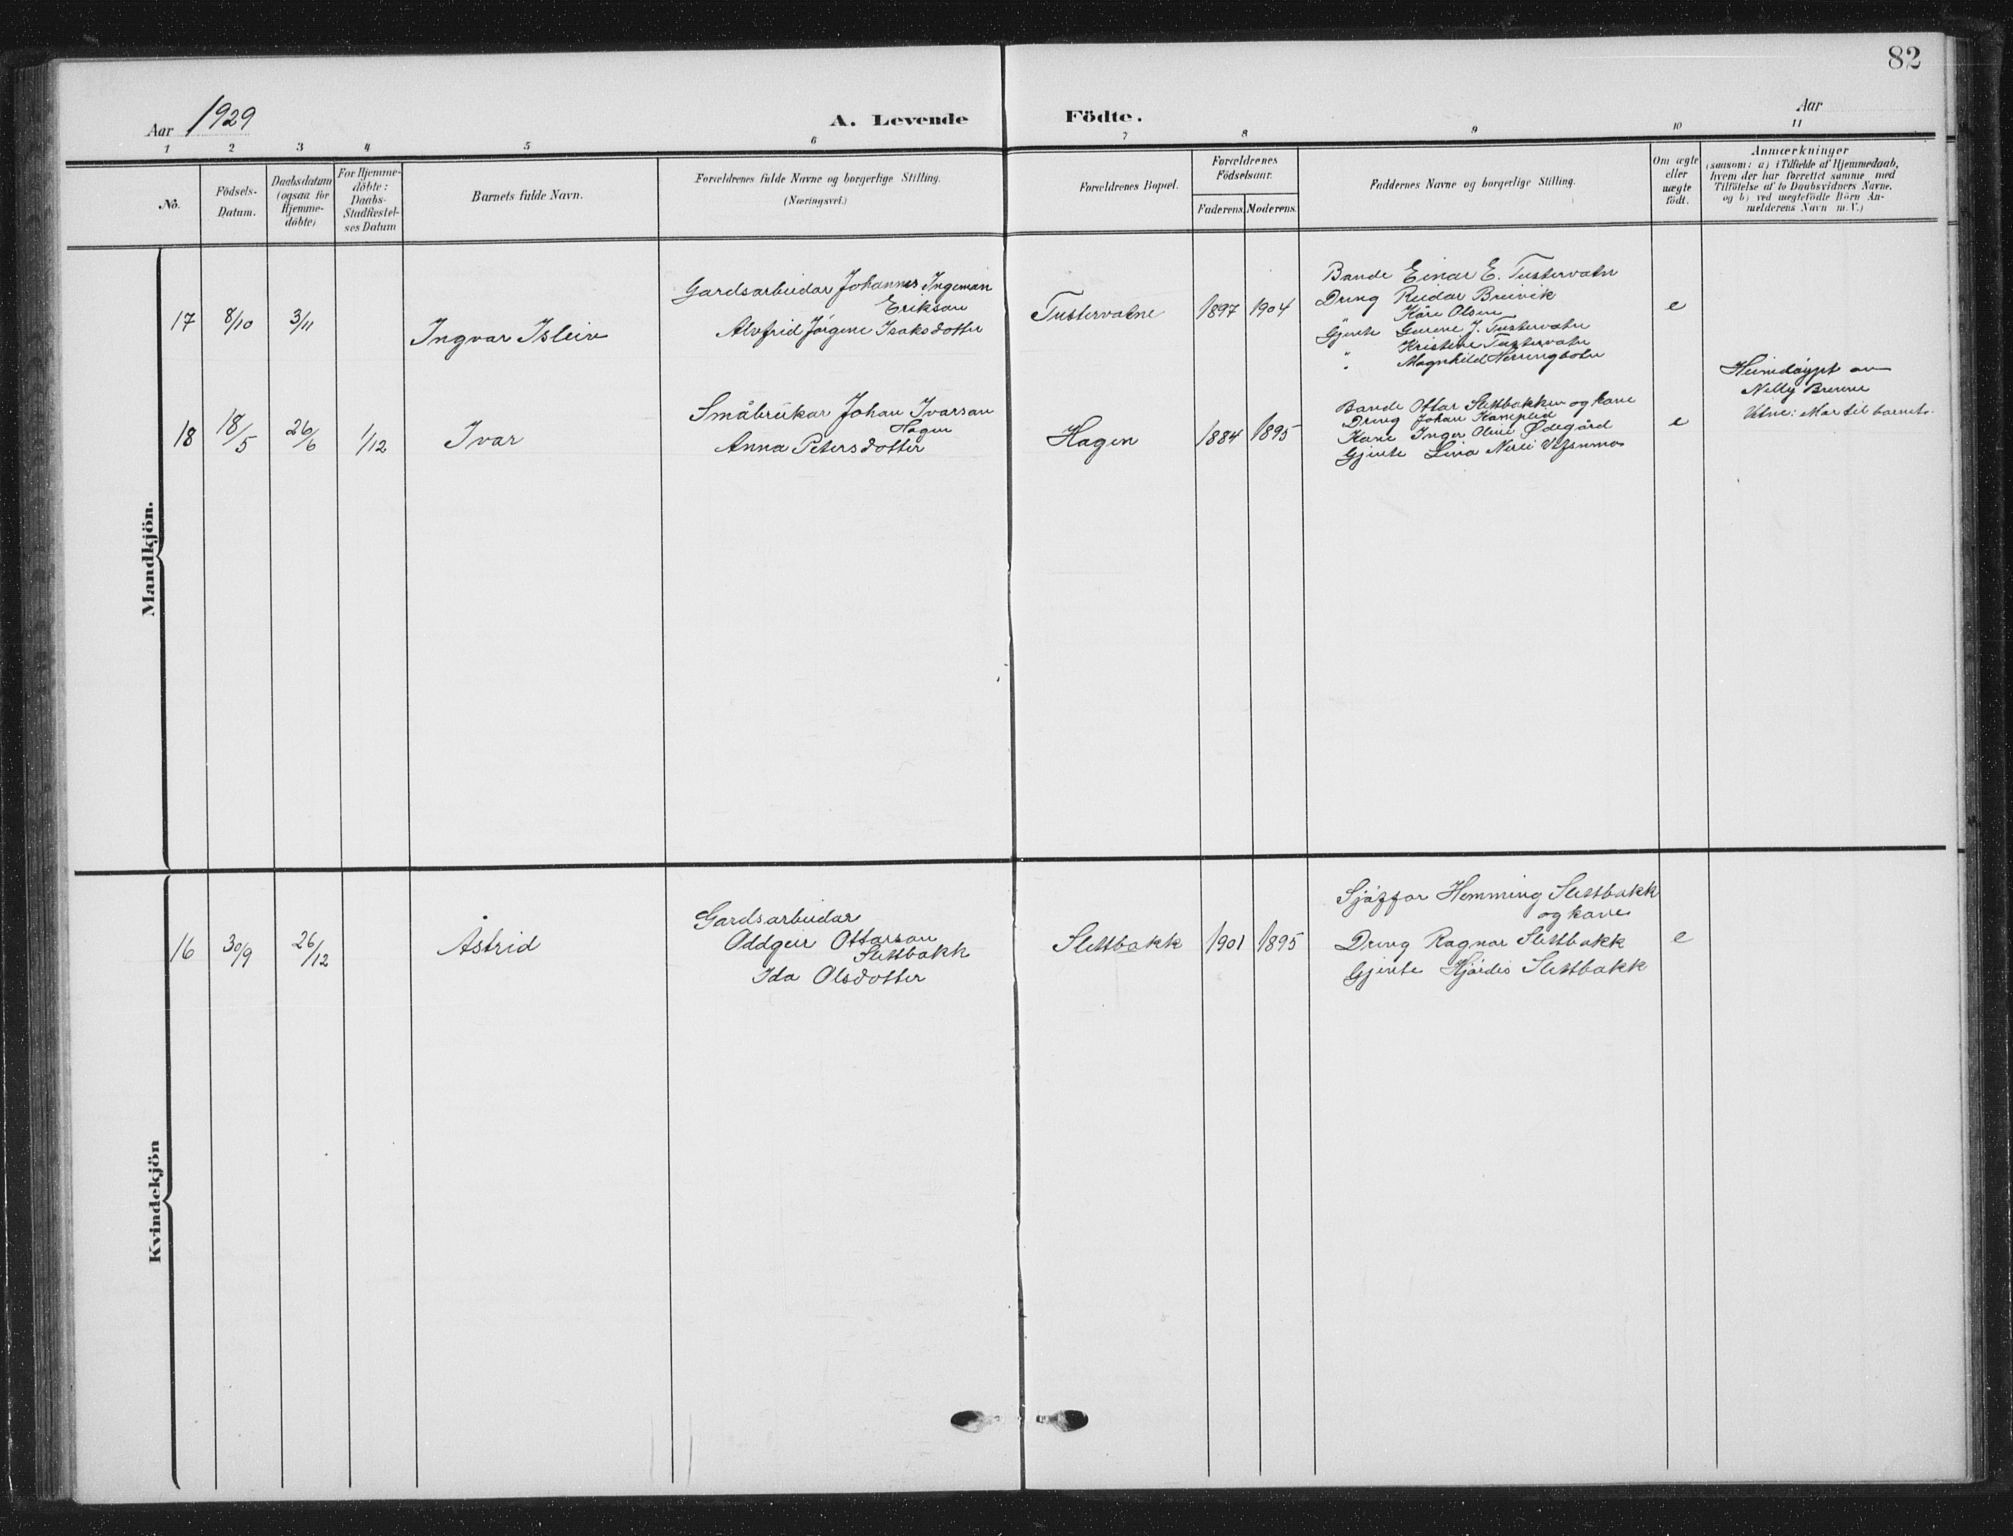 82
Aar 1929
A. Levende Födte.
Aar
1 2 3 4 5 6 7 8 9 10 11
No.
Födsels-
Datum.
Daabsdatum
(ogsaa for
Hjemme-
döbte)
For Hjemme-
döbte:
Daabs-
Stadfiestel-
ses Datum
Barnets fulde Navn.
Forældrenes fulde Navne og borgerlige Stilling.
(Næringsvei.)
Forældrenes Bopæl.
Forældrenes
Födselsaar.
Faderens. Moderens.
Faddernes Navne og borgerlige Stilling.
Om ægte
eller
uægte
födt.
Anmærkninger
(saasom: a) i Tilfælde af Hjemmedaab,
hvem der har forrettet samme med
Tilföielse af to Daabsvidners Navne,
og b) ved uægtefödte Börn An-
melderens Navn m. V.)
Mandkjön.
17 8/10 3/11
Ingvar Isleiv
Gardsarbeidar Johannes Ingeman
Eriksan
Alvfrid Jørgine Isaksdotter
Tustervatne
1897 1904
Bonde Einar E. Tustervatn
Dreng Reidar Breivik
Kåre Olsen
Gjente J. Tustervatn
" Kristine Tustervatn
" Magnhild Herringbotn
e
18 18/5 26/6 1/12
Ivar
Småbrukar Johan Ivarsan
Hagen
Anna Petersdotter
Hagen
1884 1895
Bonde Ottar Slettbakken og kone
Dreng Johan
Kone Inger Oline Ødegård
Gjente Lina Nerli Vefsnmo
e
Heimdøypt av
Nelly Brenne
Utne: Mor til barnet.
Kvindekjön
16 30/9 26/12
Åstrid
Gardsarbeidar
Oddgeir Ottarsan
Slettbakk
Ida Olsdotter
Slettbakk
1901 1895
Sjåffør Hemming Slettbakk
og kone
Dreng Ragnar Slettbakk
Gjente Hjørdis Slettbakk
e